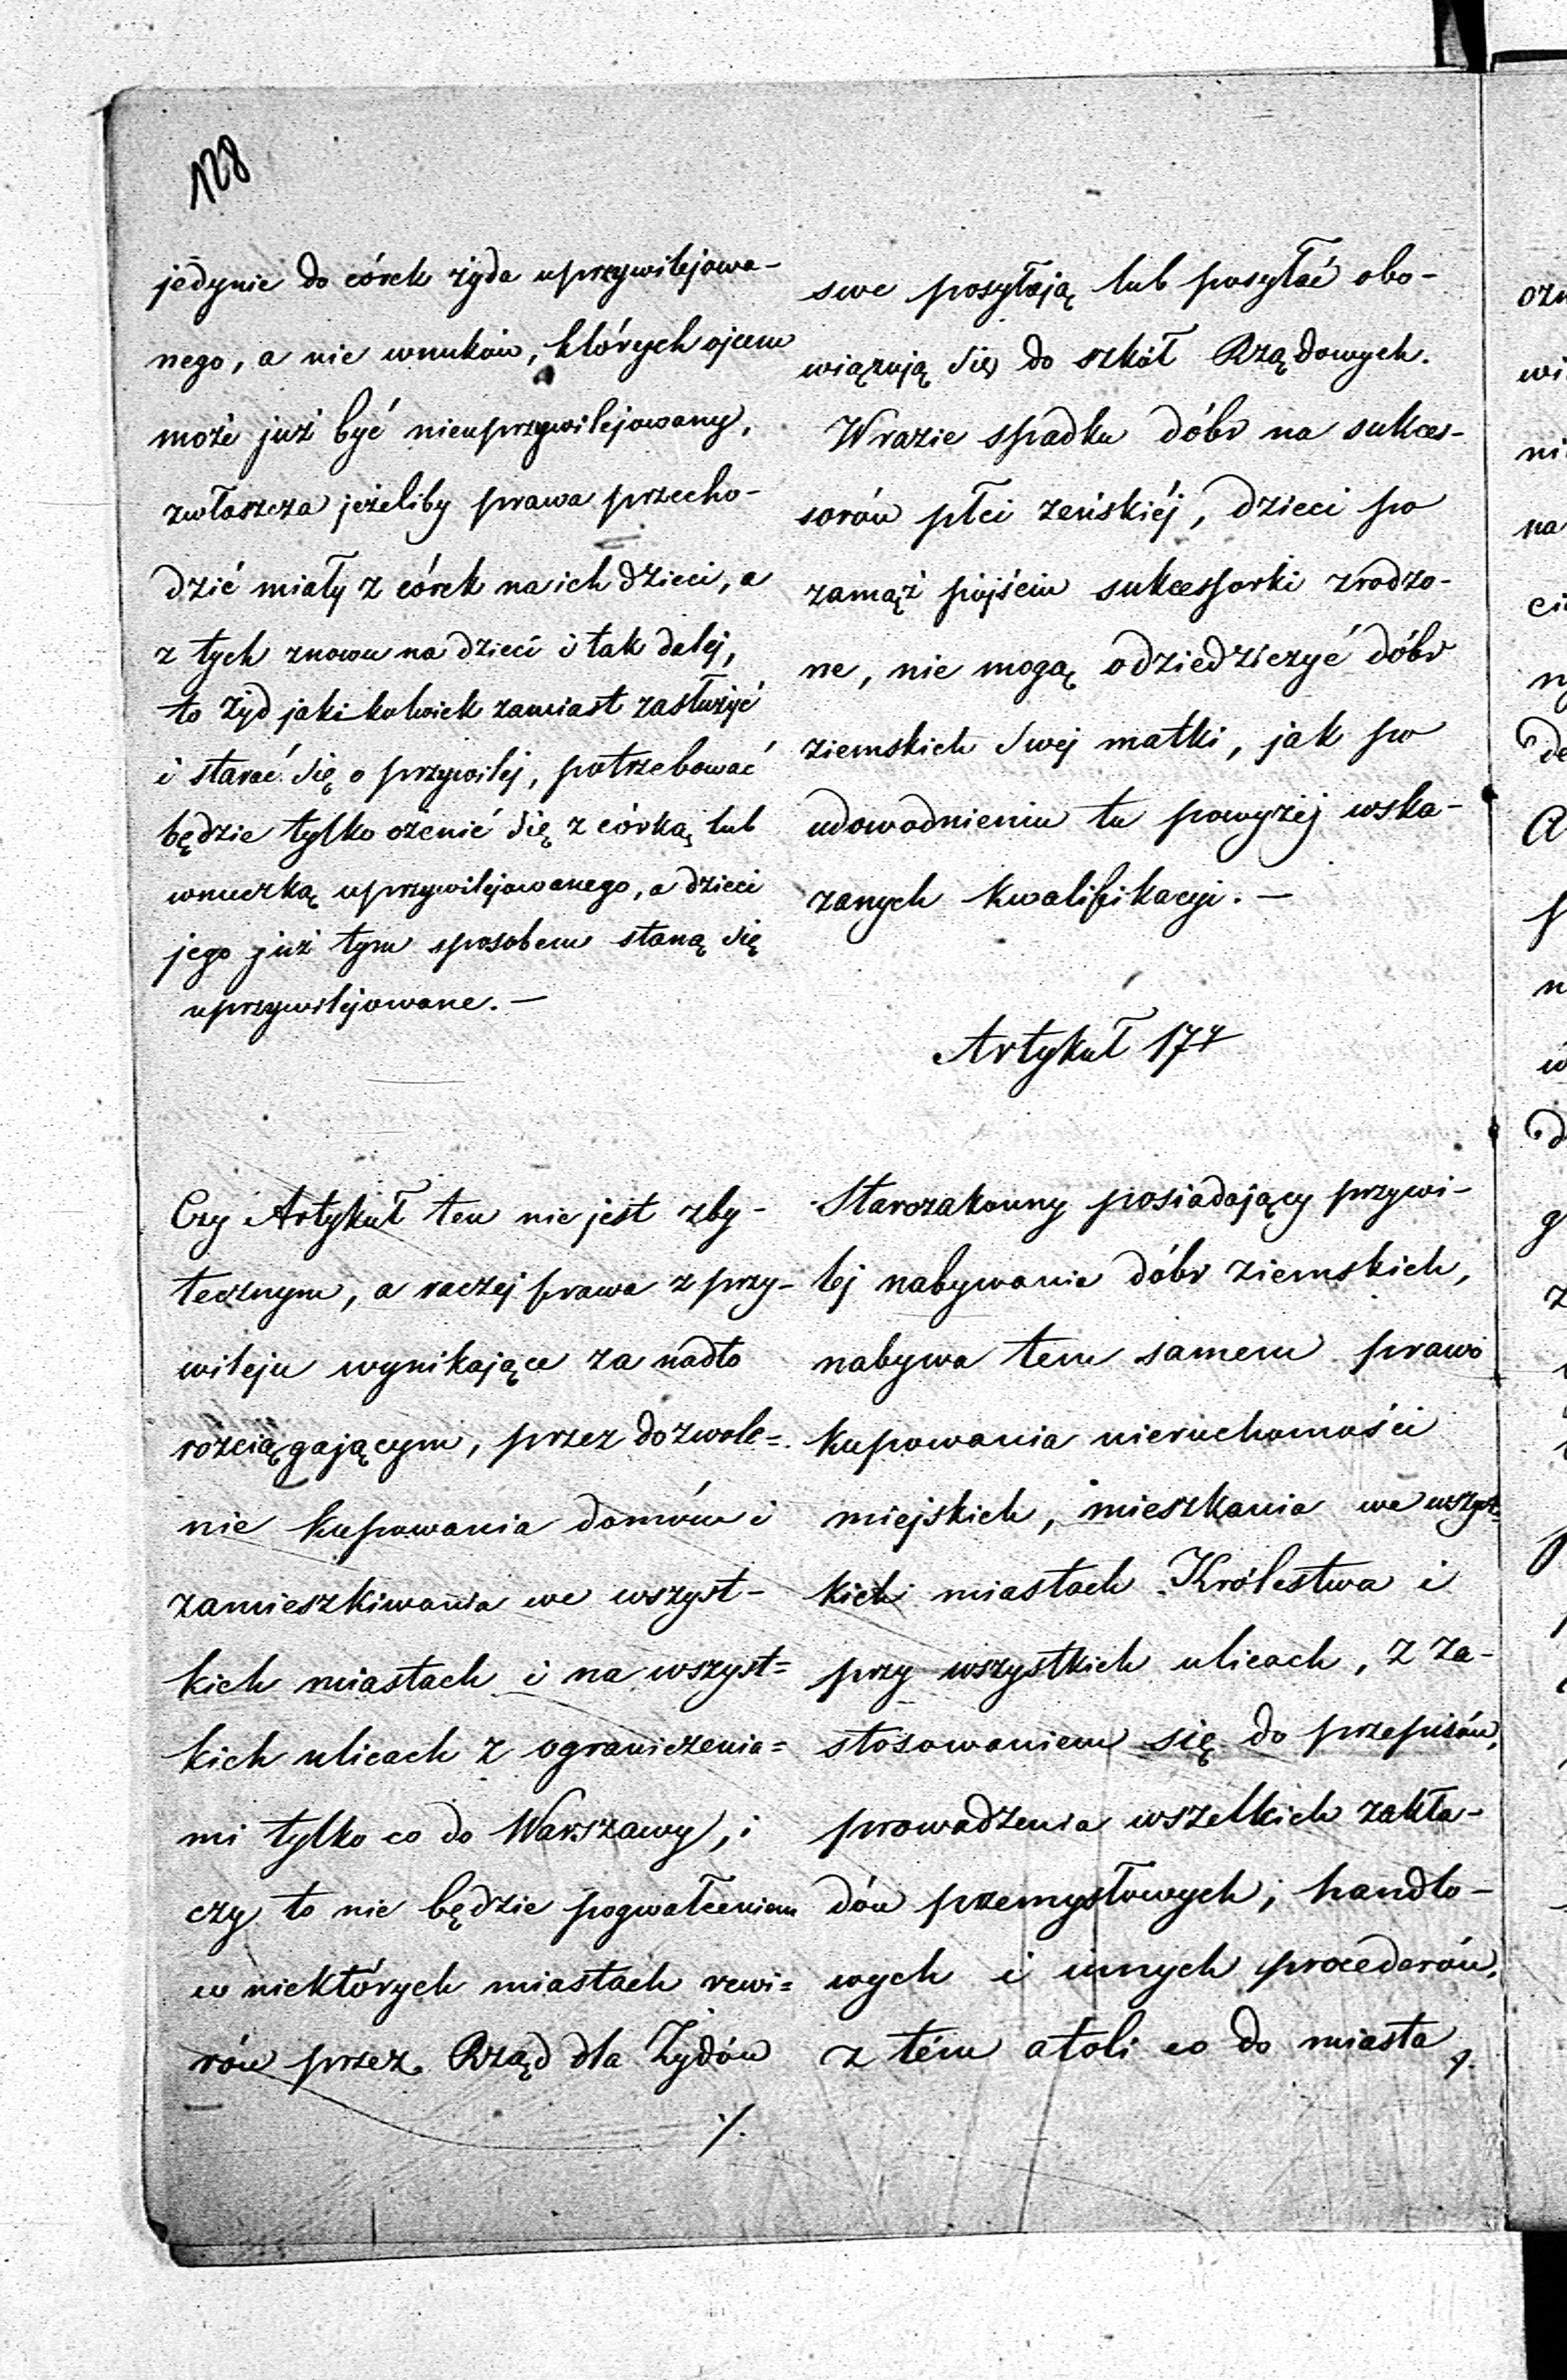 128
jedynie do córek żyda uprzywilejowa-
nego, a nie wnuków, których ojcem
może już być nieuprzywilejowany,
zwłaszcza jeżeliby prawa przecho-
dzić miały z córek na ich dzieci, a
z tych znowu na dzieci i tak dalej,
to żyd jakikolwiek zamiast zasłużyć
i starać się o przywilej, potrzebować
będzie tylko ożenić się z córką lub
wnuczką uprzywilejowanego, a dzieci
jego już tym sposobem staną się
uprzywilejowane. —
Czy Artykuł ten nie jest zby-
tecznym, a raczej prawa z przy-
wileju wynikające za nadto
rozciągającym, przez dozwole=
nie kupowania domów i
zamieszkiwania we wszyst-
kich miastach i na wszyst=
kich ulicach z ograniczenia=
mi tylko co do Warszawy, i
czy to nie będzie pogwałceniem
w niektórych miastach rewi=
rów przez Rząd dla Żydów
./.
swe posyłają lub posyłać obo-
wiązują się do szkół Rządowych.
W razie spadku dóbr na sukces-
sorów płci żeńskiéj, dzieci po
zamąż pójściu sukcessorki zrodzo-
ne, nie mogą odziedziczyć dóbr
ziemskich swej matki, jak po
udowodnieniu tu powyżej wska-
zanych kwalifikacyi. —
Artykuł 17
Starozakonny posiadający przywi-
lej nabywania dóbr ziemskich,
nabywa tem samem prawo
kupowania nieruchomości
miejskich, mieszkania we wszyst=
kich miastach Królestwa i
przy wszystkich ulicach, z za-
stosowaniem się do przepisów,
prowadzenia wszelkich zakła-
dów przemysłowych, handlo-
wych i innych procederów,
z tém atoli co do miasta